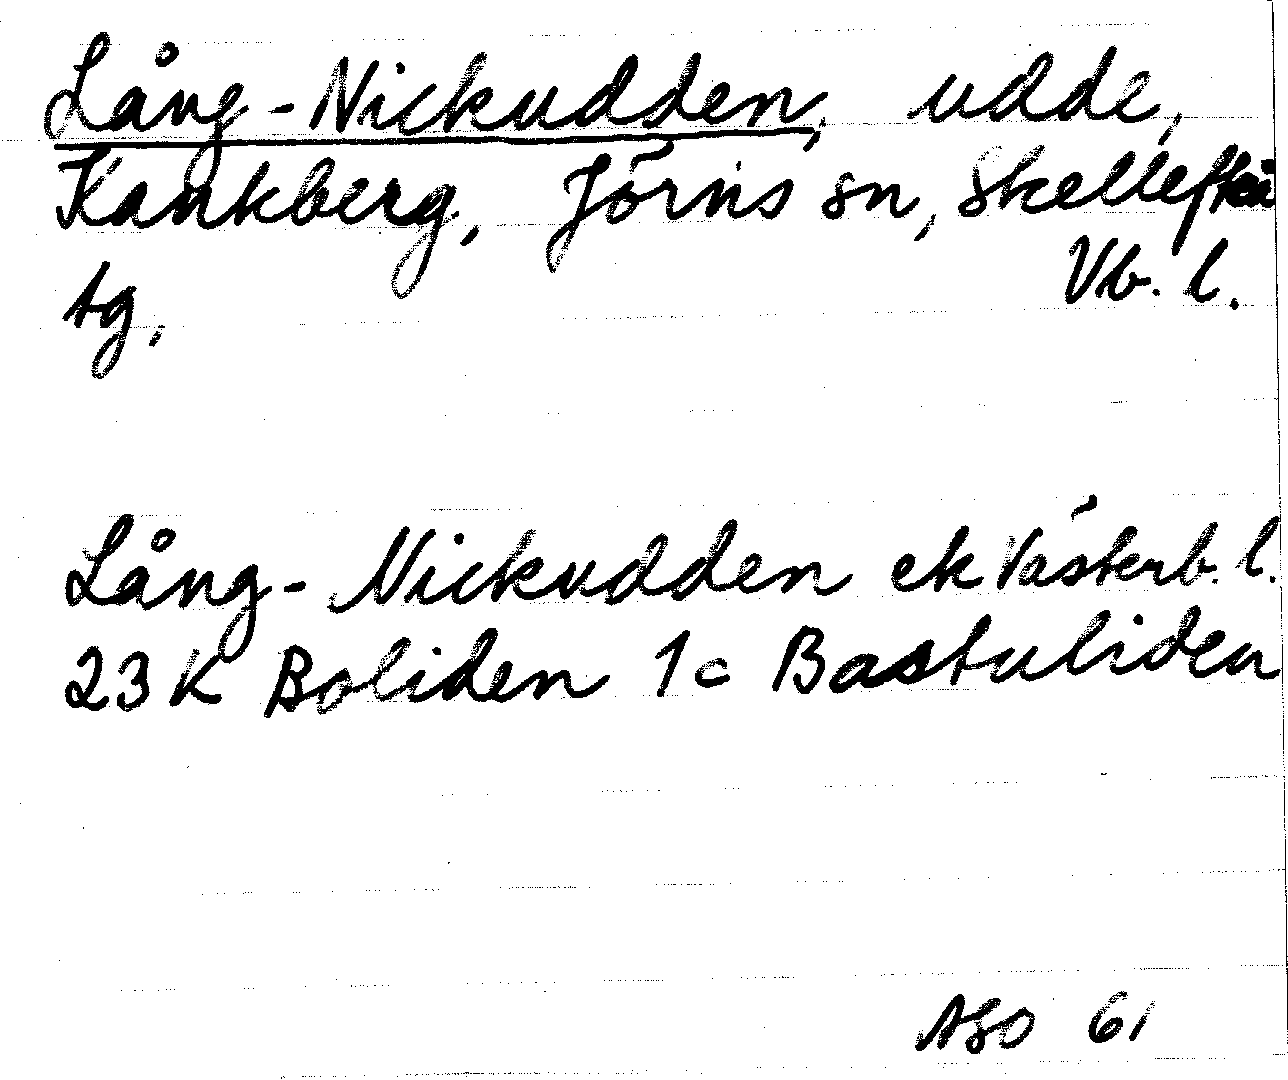 Lång-Nickudden, udde,
Kankberg, Jörns sn, Skellefteå
tg, Vb. l.
Lång-Nickudden ek Västerb. l.
23K Boliden 1c Bastuliden
ASO 61